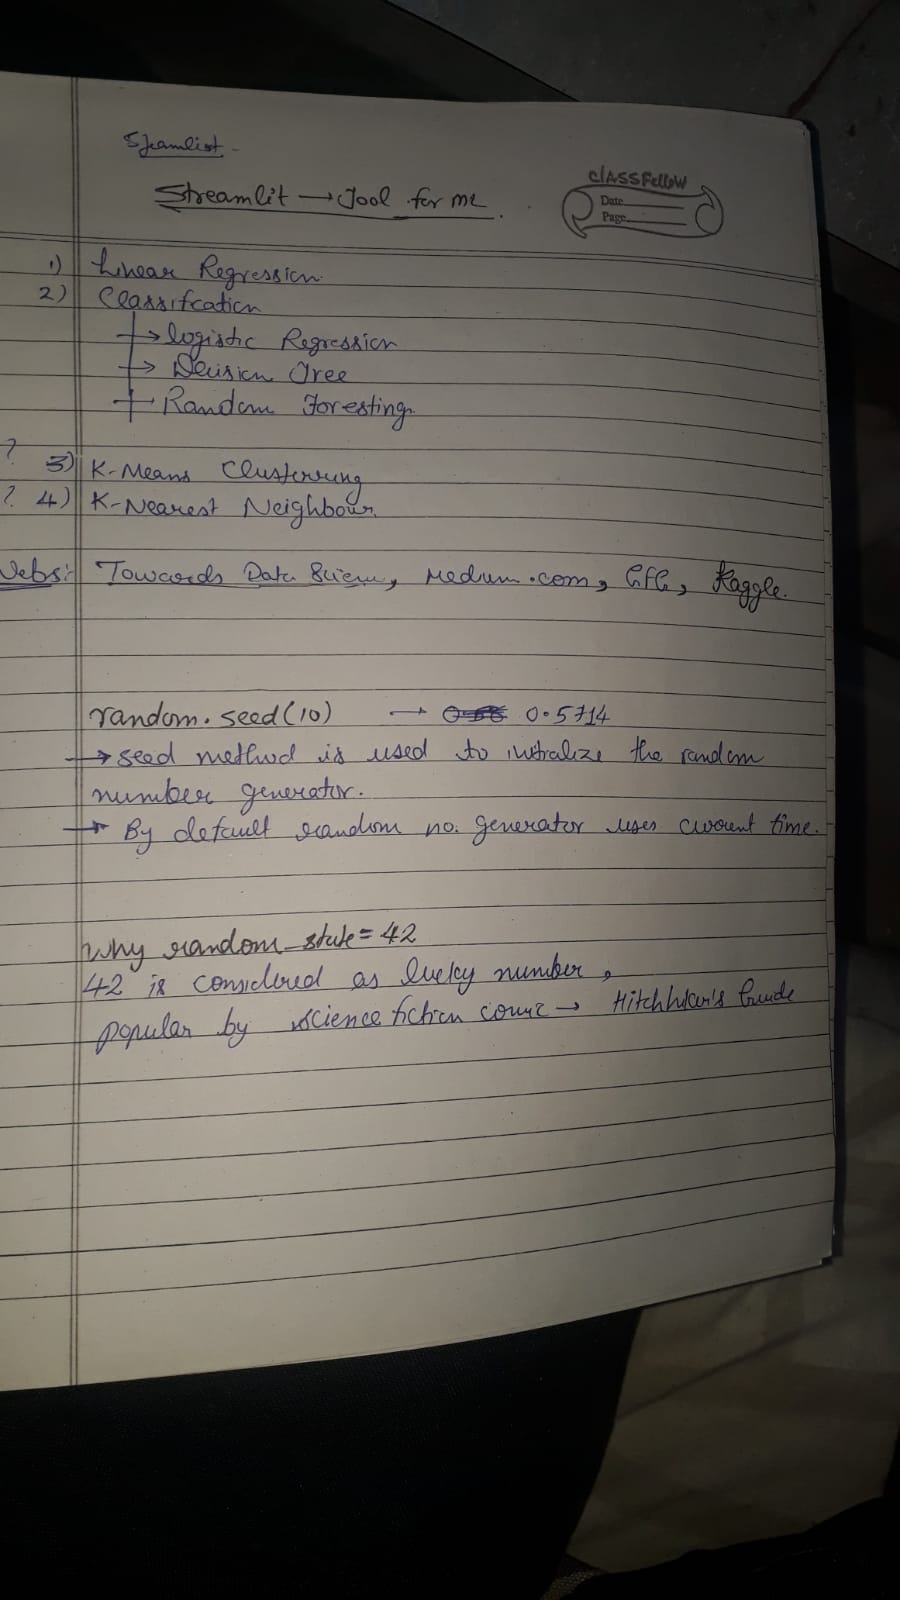 Streamlist -
Streamlit → Tool for ML.
CLASSFELLOW
Date
Page
1) Linear Regression.
2) Classifcation
→ logistic Regression
→ Decision Tree
→ Random Foresting.
? 3) K-Means Clustering
? 4) K-Nearest Neighbour.
Webs:- Towards Data Science, Medium.com, GfG, Kaggle.
random.seed(10) → 0.5714
→ seed method is used to initialize the random
number generator.
→ By default random no. generator uses current time.
Why random_state = 42
42 is considered as lucky number,
popular by science fiction comic → Hitchhiker's Guide